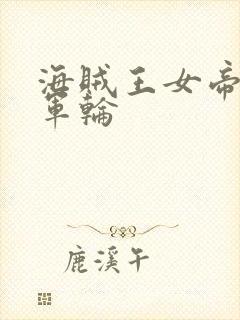 海賊王女帝
軍輪
鹿溪午